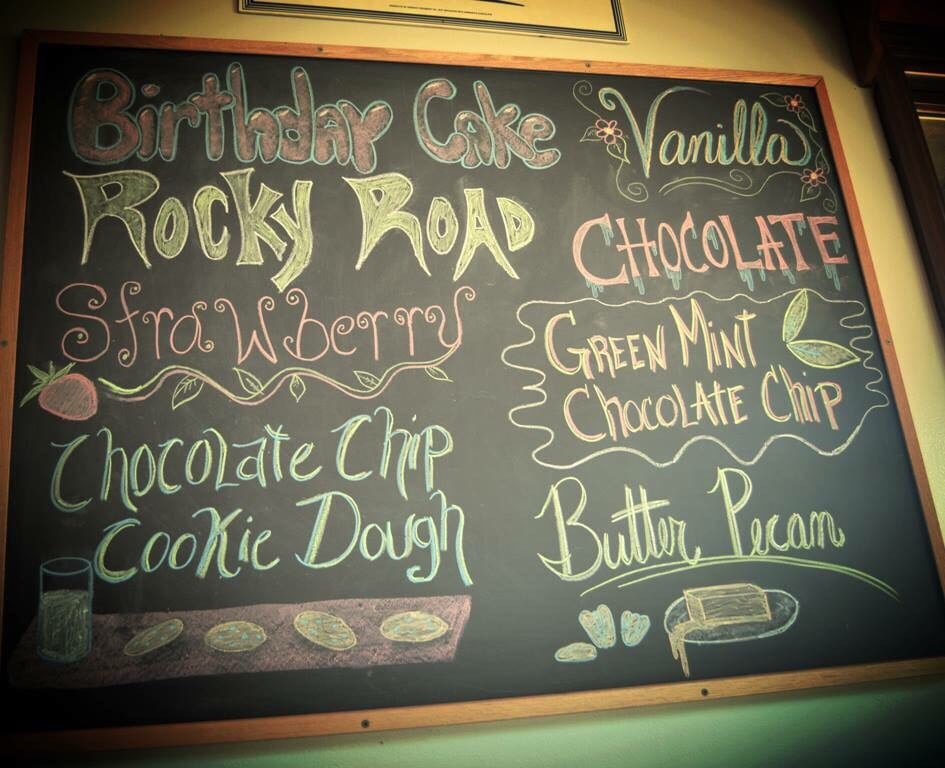 Birthday Cake
Rocky Road
Strawberry
Chocolate Chip
Cookie Dough
Vanilla
CHOCOLATE
GREEN MINT
CHOCOLATE CHIP
Butter Pecan